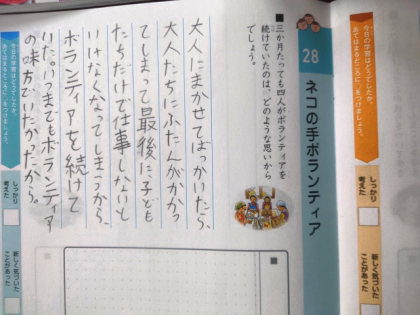 今日の学習はどうでしたか。
あてはまるところに○をつけましょう。
しっかり
考えた
新しく気づいた
ことがあった
28
ネコの手ボランティア
■三か月たっても四人がボランティアを
続けていたのは、どのような思いから
でしょう。
大人にまかせてばっかいたら、
大人たちにふたんがかかっ
てしまって最後に、子ども
たちだけで仕事しないと
いけなくなってしまうから、
ボランティアを続けて
いた。いつまでもボランティア
の味方でいたかったから。
今日の学習はどうでしたか。
あてはまるところに○をつけましょう。
しっかり
考えた
新しく気づいた
ことがあった